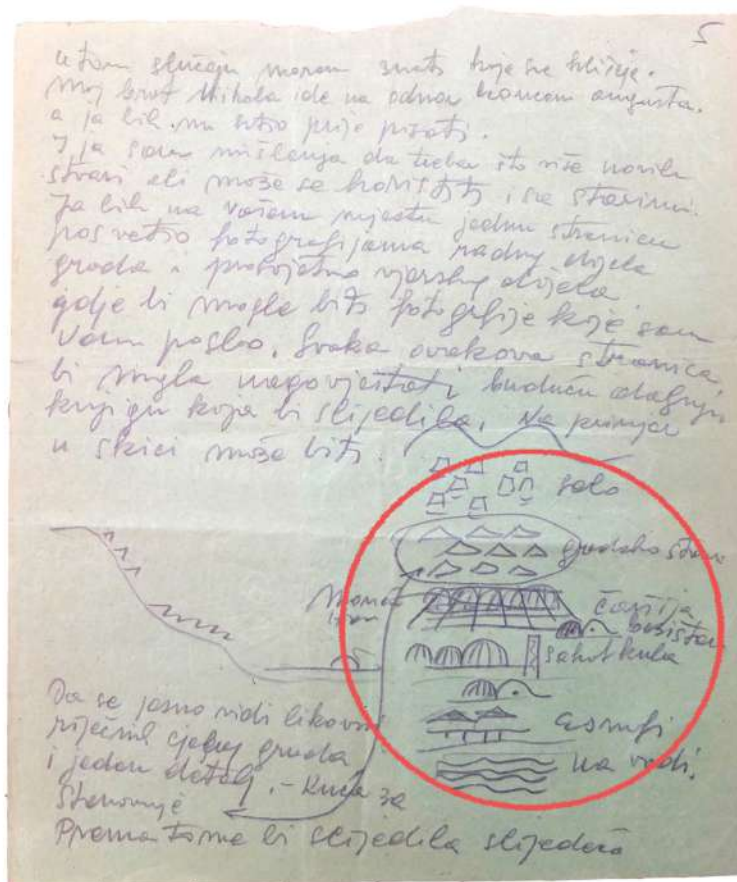 5
u tom slučaju moram znati koje su klišeje.
moj brat Nikola ide na odmor koncem augusta.
a ja bih mu htio prije pisati.
I ja sam mišlenja da treba što više novih
stvari ali može se koristiti i sa starim.
Ja bih na vašem mjestu jednu stranicu
posvetio fotografijama
grada i
gdje bi mogle biti fotografije koje sam
Vam poslao. Svaka ovakova stranica
bi mogla nagovještati buduću
knjigu koja bi slijedila. Na primjer
u skici može biti.
selo
gradsko
čaršija
bezistan
sahat kula
esnafi
na vodi.
Da se jasno vidi likovni
rječnik cijelog grada
i jedan detalj. - Kuća za
stanovanje
Prema tome bi slijedila slijedeća